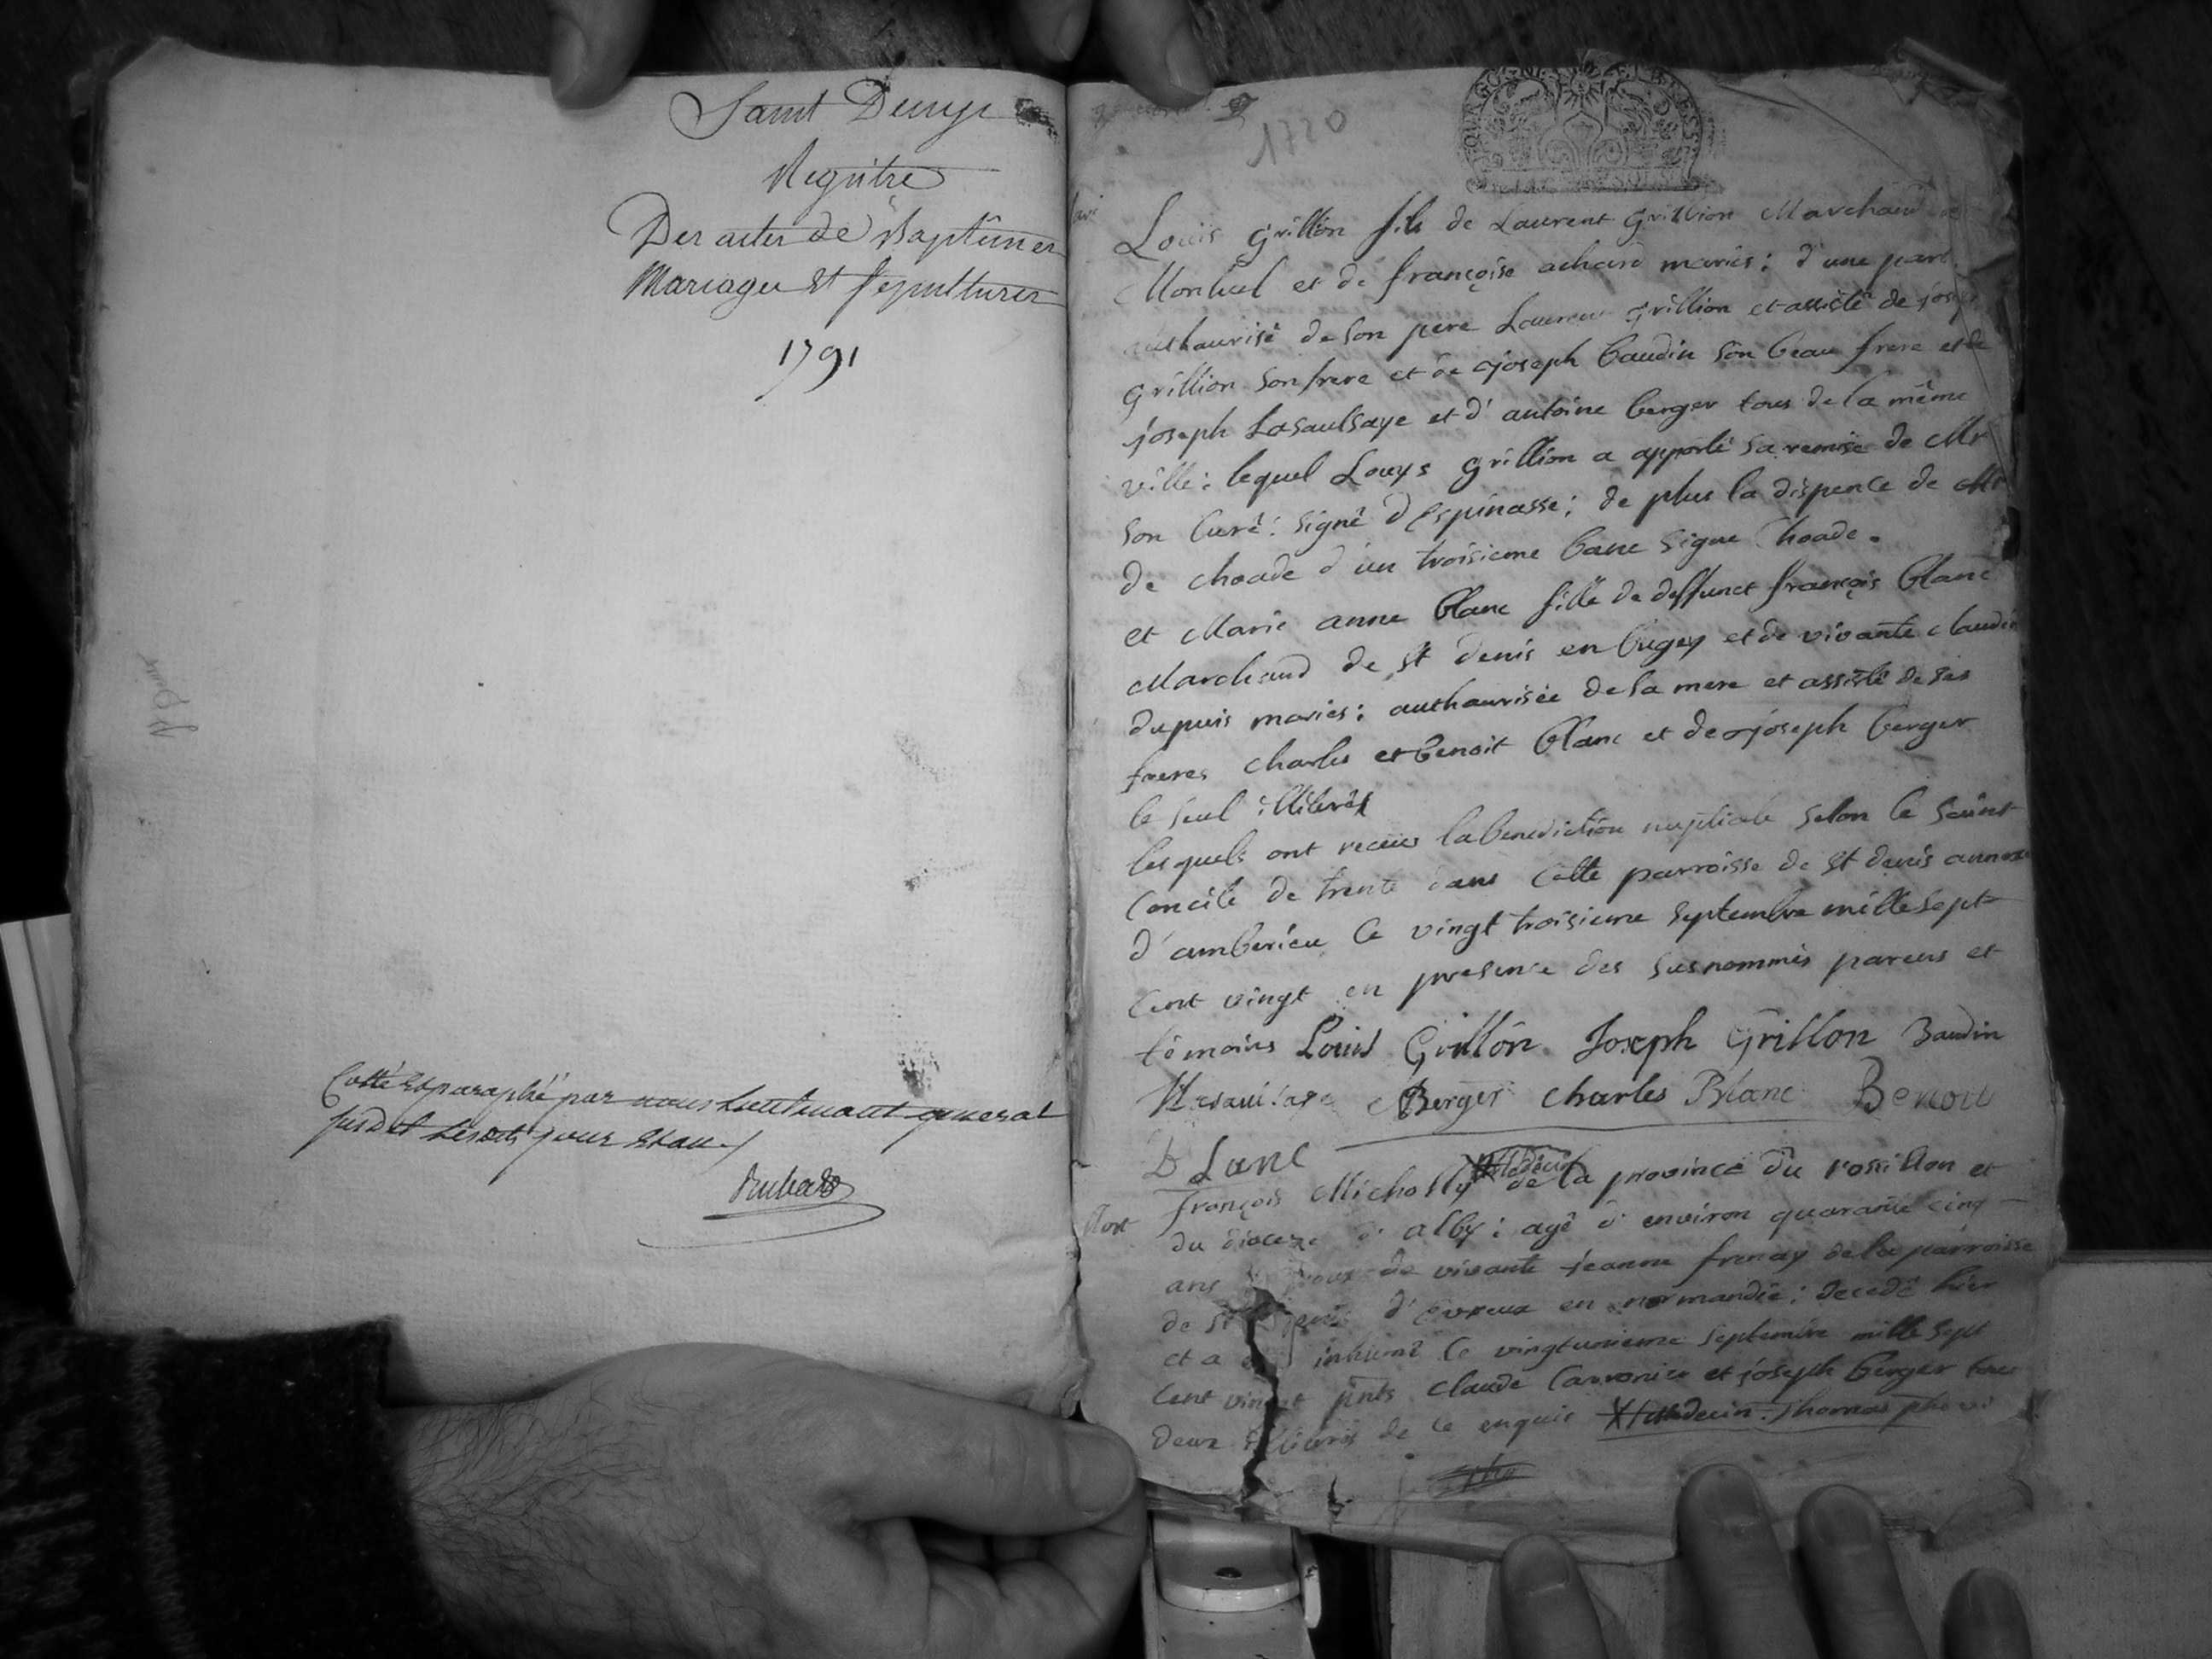 Saint Denys
Registre
Des actes de Baptêmes
Mariages et Sepultures
1791
Cotté et paraphé par nous Lieutenant general
1720
Louis Grillion fils de Laurent Grillion Marchand
Monluel et de françoise achard mariés; d'une part
authaurisé de son pere Laurent Grillion et assisté de joseph
Grillion son frere et de joseph baudin son beau frere et de
joseph Lasaulsaye et d'antoine berger tous de la même
ville: lequel Louys Grillion a apporté sa remise de Mr
son Curé: signé d'Espinasse; de plus la dispence de Mr
de choade d'un troisieme banc signe Choade.
et Marie anne blanc fille de deffunct françois blanc
Marchand de st denis en bugey et de vivante claudine
dupuis mariés: authaurisée de sa mere et assisté de ses
freres charles et benoit blanc et de joseph berger
le seul illiteré
lesquels ont receus la benediction nuptiale selon le saint
Concile de trente dans Cette parroisse de st denis annexe
d'amberieu Ce vingt troisieme septembre mille sept
Cent vingt en presence des susnommés parens et
témoins Louis Grillon Joseph Grillon Baudin
Berger charles Blanc Benoit
Blanc
Mort
françois Micholly Medecin de la province du rossillon et
du dioceze d'alby: agé d'environ quarante cinq
ans de vivante jeanne frenay de la parroisse
de st d'Evreux en normandie; decedé hier
et a inhumé Ce vingtunieme septembre mille sept
Cent vingt pnts Claude et joseph berger tous
deux de Ce enquis Medecin. Thomas